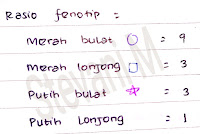 Rasio fenotip =
Merah bulat = 9
Merah lonjong = 3
Putih bulat = 3
Putih Lonjong = 1